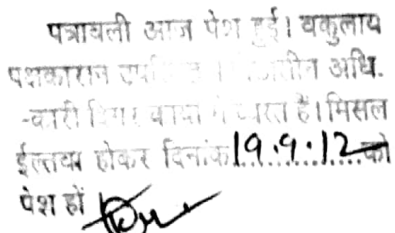 पत्रावली आज पेश हुई। वकुलाय
पक्षकारान
अधि.
-कारी में व्यस्त हैं। मिसल
ईल्तवा होकर दिनांक 19.9.12 को
पेश हों